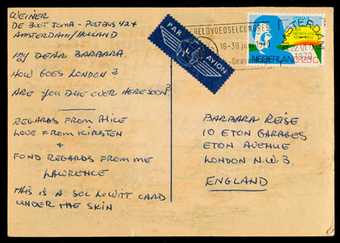 WEINER
AMSTERDAM/HOLLAND
MY DEAR BARBARA
HOW GOES LONDON?
ARE YOU DUE OVER HERE SOON?
REGARDS FROM ALICE
LOVE FROM KIRSTEN
+
FOND REGARDS FROM ME
LAWRENCE
THIS IS A SOL LEWITT CARD
UNDER THE SKIN
PAR AVION
NEDERLAND
BARBARA REISE
10 ETON GARAGES
ETON AVENUE
LONDON N.W.3
ENGLAND